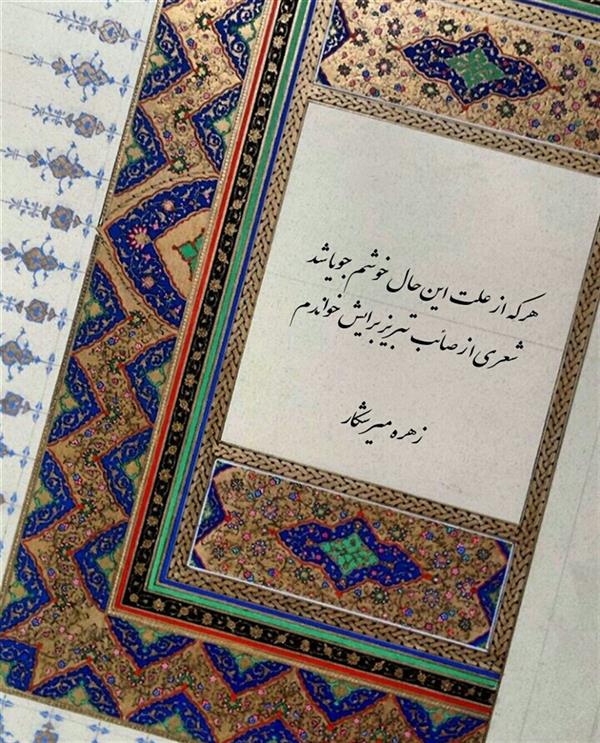 هر که از علت این حال خوشم جویا شد
شعری از صائب تبریز برایش خواندم
زهره میرشکار